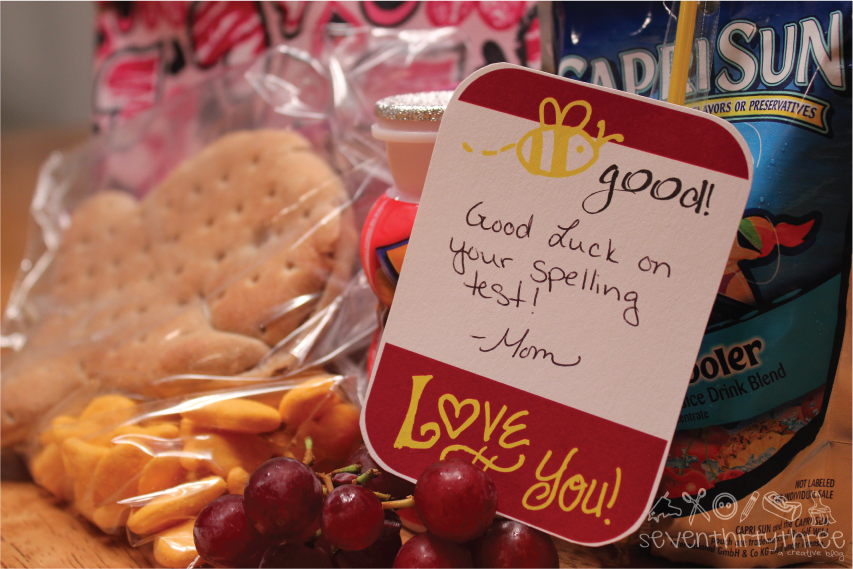 CAPRI SUN
FLAVORS OR PRESERVATIVES
good!
Good Luck on
your spelling
test!
-Mom
Love
You!
ooler
ice Drink Blend
NOT LABELED
INDIVIDUAL SALE
CAPRI SUN and the
seventhirtythree
a creative blog